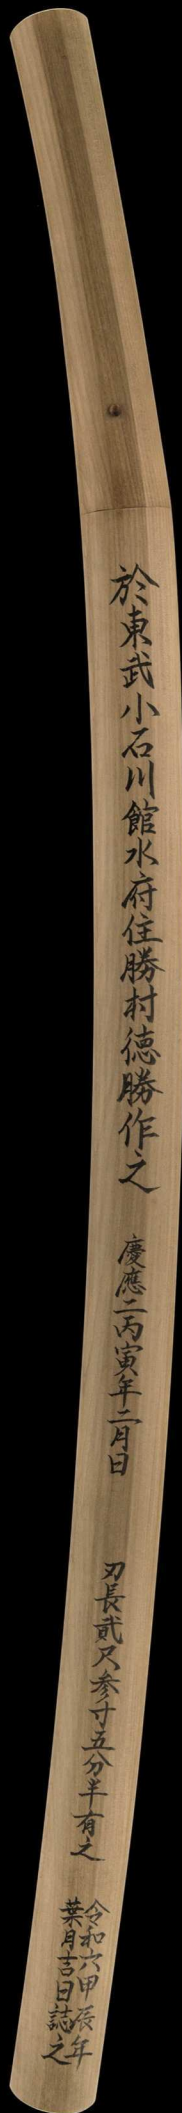 於東武小石川館水府住勝村徳勝作之
慶應二丙寅年二月日
刃長貳尺参寸五分半有之
令和六甲辰年
葉月吉日誌之